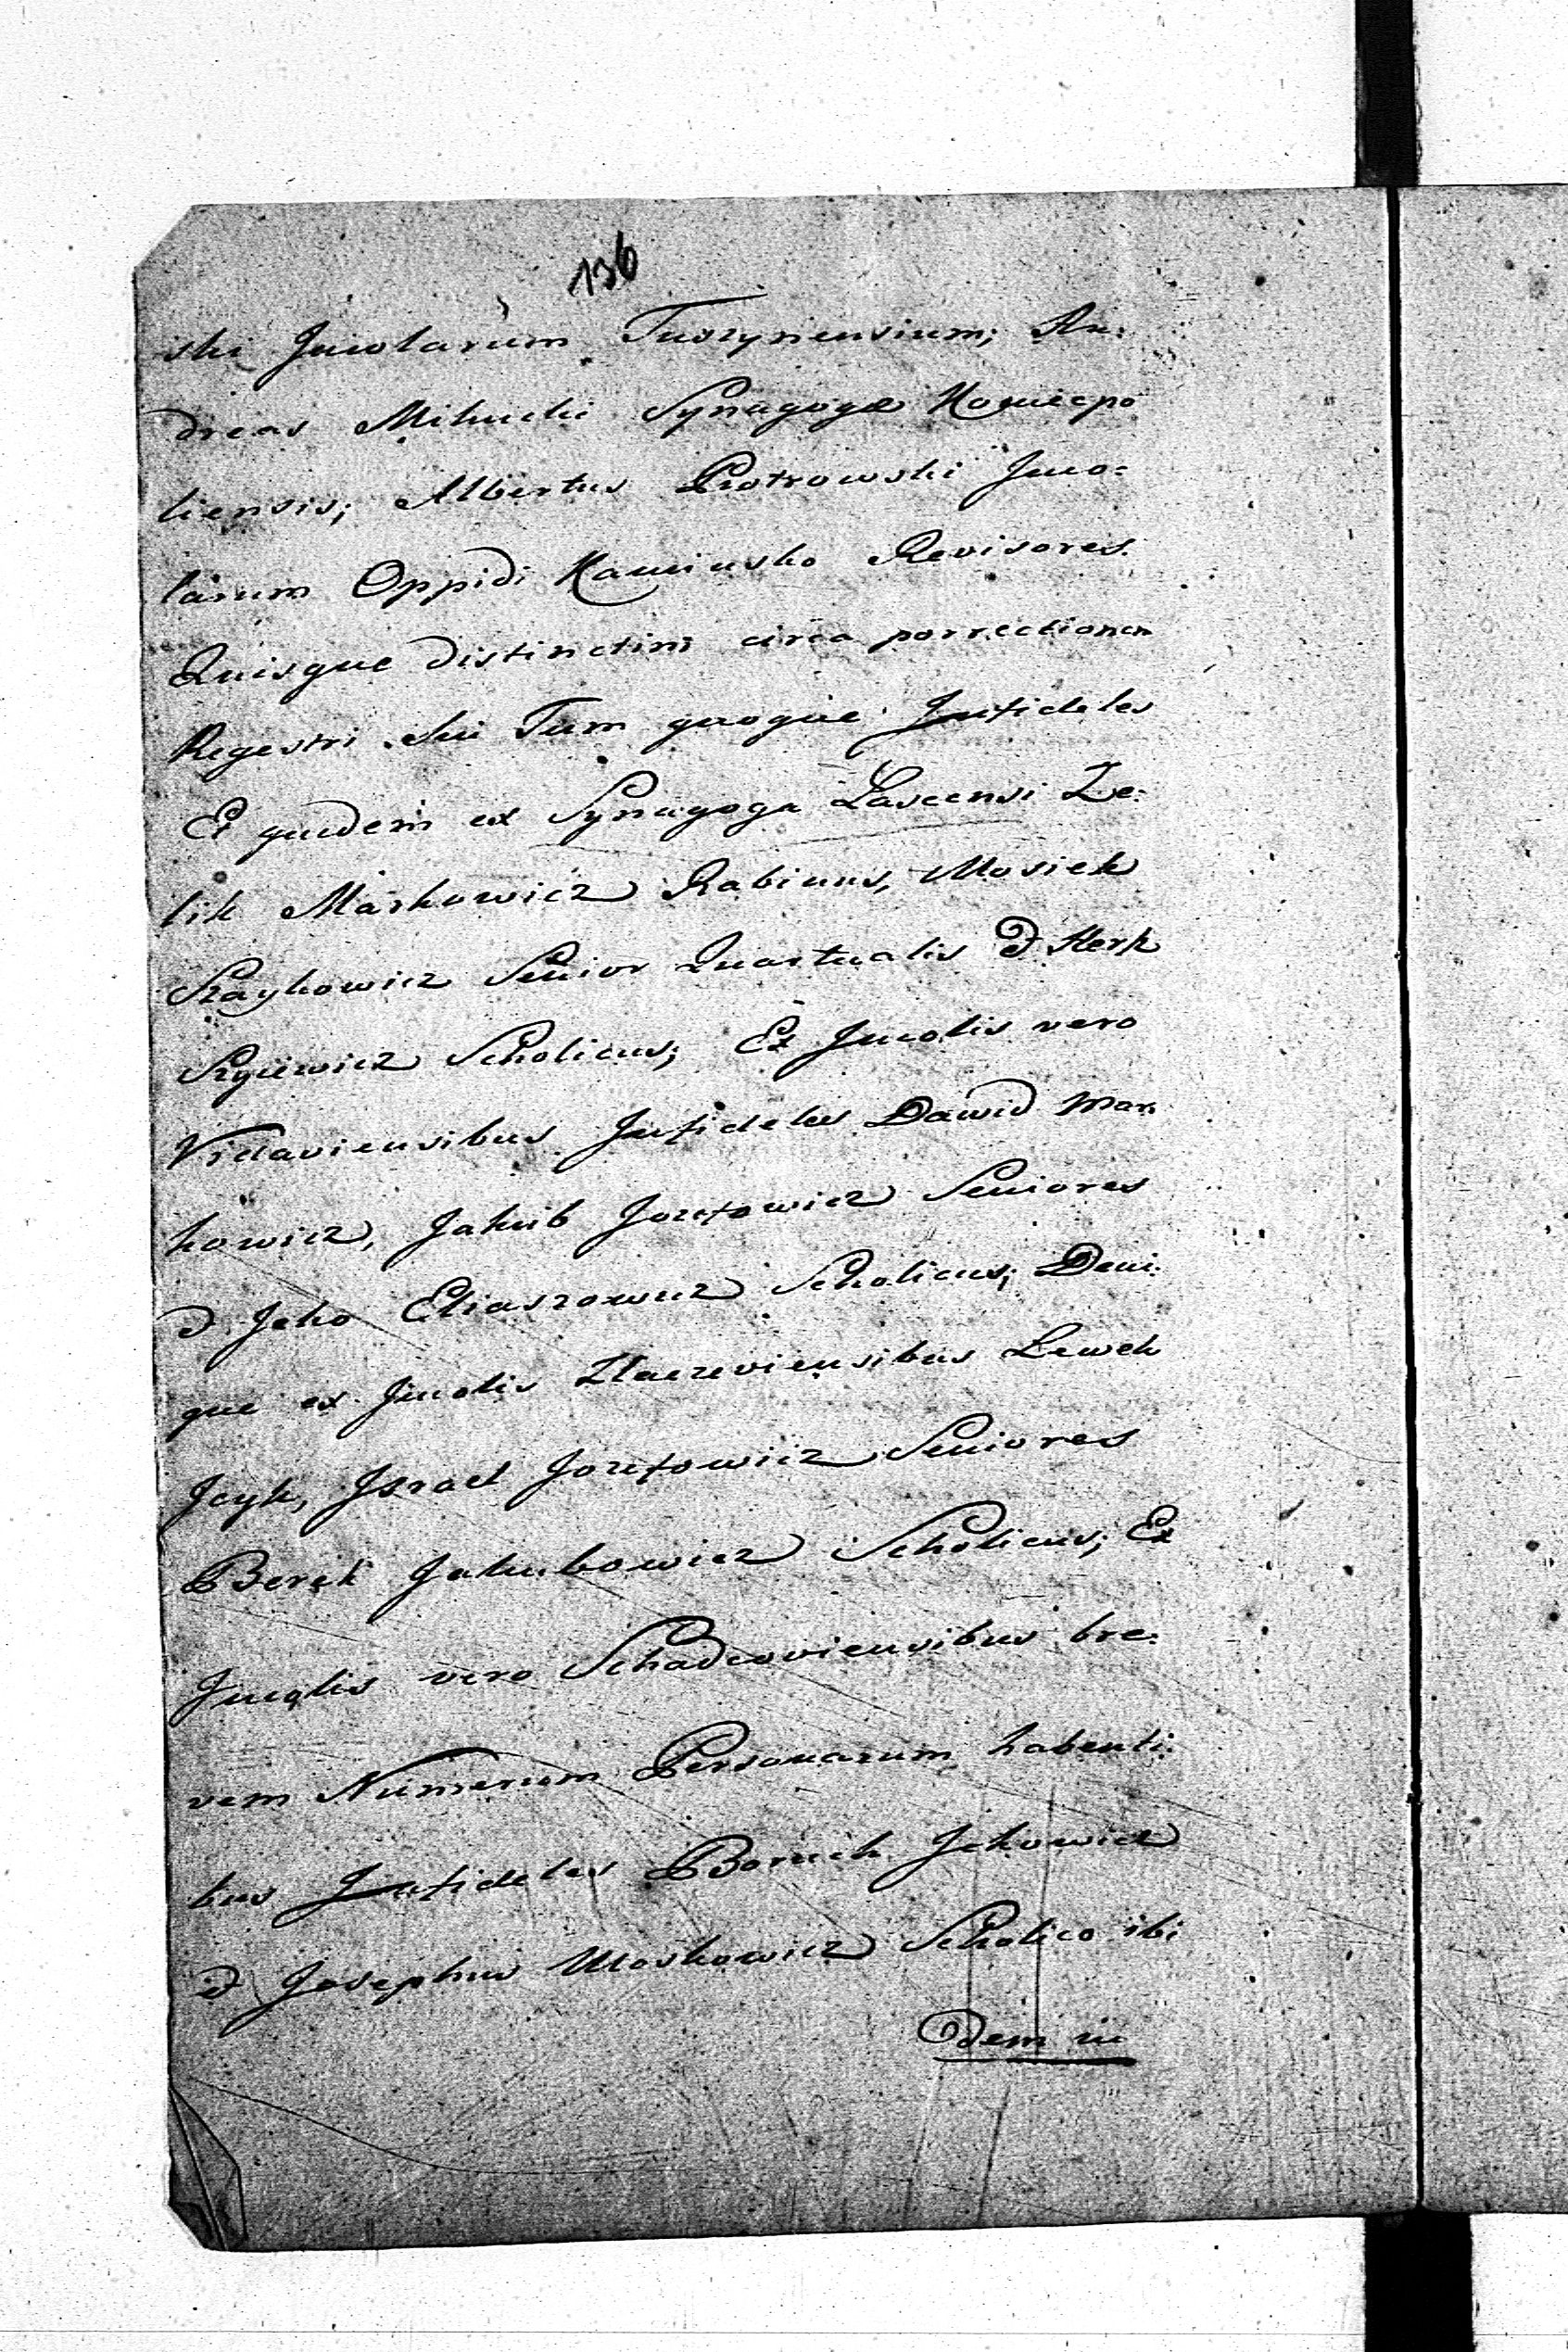 136
ski Incolarum Tuszynensium; An:
dreas Milucki Synagogæ Koniecpo
liensis; Albertus Piotrowski Inco=
larum Oppidi Kaminsko Revisores.
Quisque distinctim circa porrectionem
Regestri sui Tum quoque Infideles
Et quidem ex Synagoga Lascensi Ze:
lik Markowicz Rabinus, Mosiek
Szaykowicz Senior Quartualis & Herk
Szyiewicz Scholicus; Ex Incolis vero
Vidaviensibus Infideles Dawid Mar:
kowicz, Jakub Jozefowicz Seniores
& Jcko Eliaszowicz Scholicus; Deni:
que ex Incolis Zlaczeviensibus Lewek
Jcyk, Jsrael Jozefowicz Seniores
Berek Jakubowicz Scholicus; Ex
Incolis vero Schadcoviensibus bre:
vem Numerum Personarum habenti:
bus Infideles Boruch Jckowicz
& Josephus Moskowicz Scholico ibi
Dem in